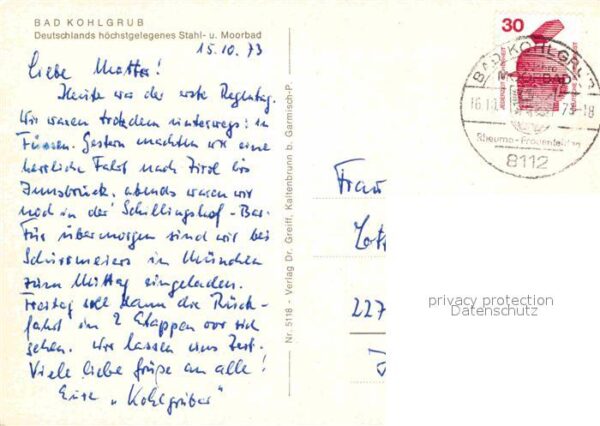 BAD KOHLGRUB
Deutschlands höchstgelegenes Stahl- u. Moorbad
15.10.73
Liebe Mutter!
Heute war der erste Regentag.
Wir waren trotzdem unterwegs: in
Füssen. Gestern machten wir eine
herrliche Fahrt nach Zirl bis
Innsbruck, abends waren wir
noch in der Schillingshof-Bar.
Für übermorgen sind wir bei
Schirrmeiers in München
zum Mittag eingeladen.
Freitag soll dann die Rück-
fahrt in 2 Etappen vor sich
gehen. Wir lassen uns Zeit.
Viele liebe Grüße an alle!
Eure „Kohlgruber"
Nr. 5118 - Verlag Dr. Greiff, Kaltenbrunn b. Garmisch-P.
30
BAD KOHLGRUB
MOORBAD
16.10. 73-18
Rheuma-Frauenleiden
8112
Frau
227
privacy protection
Datenschutz